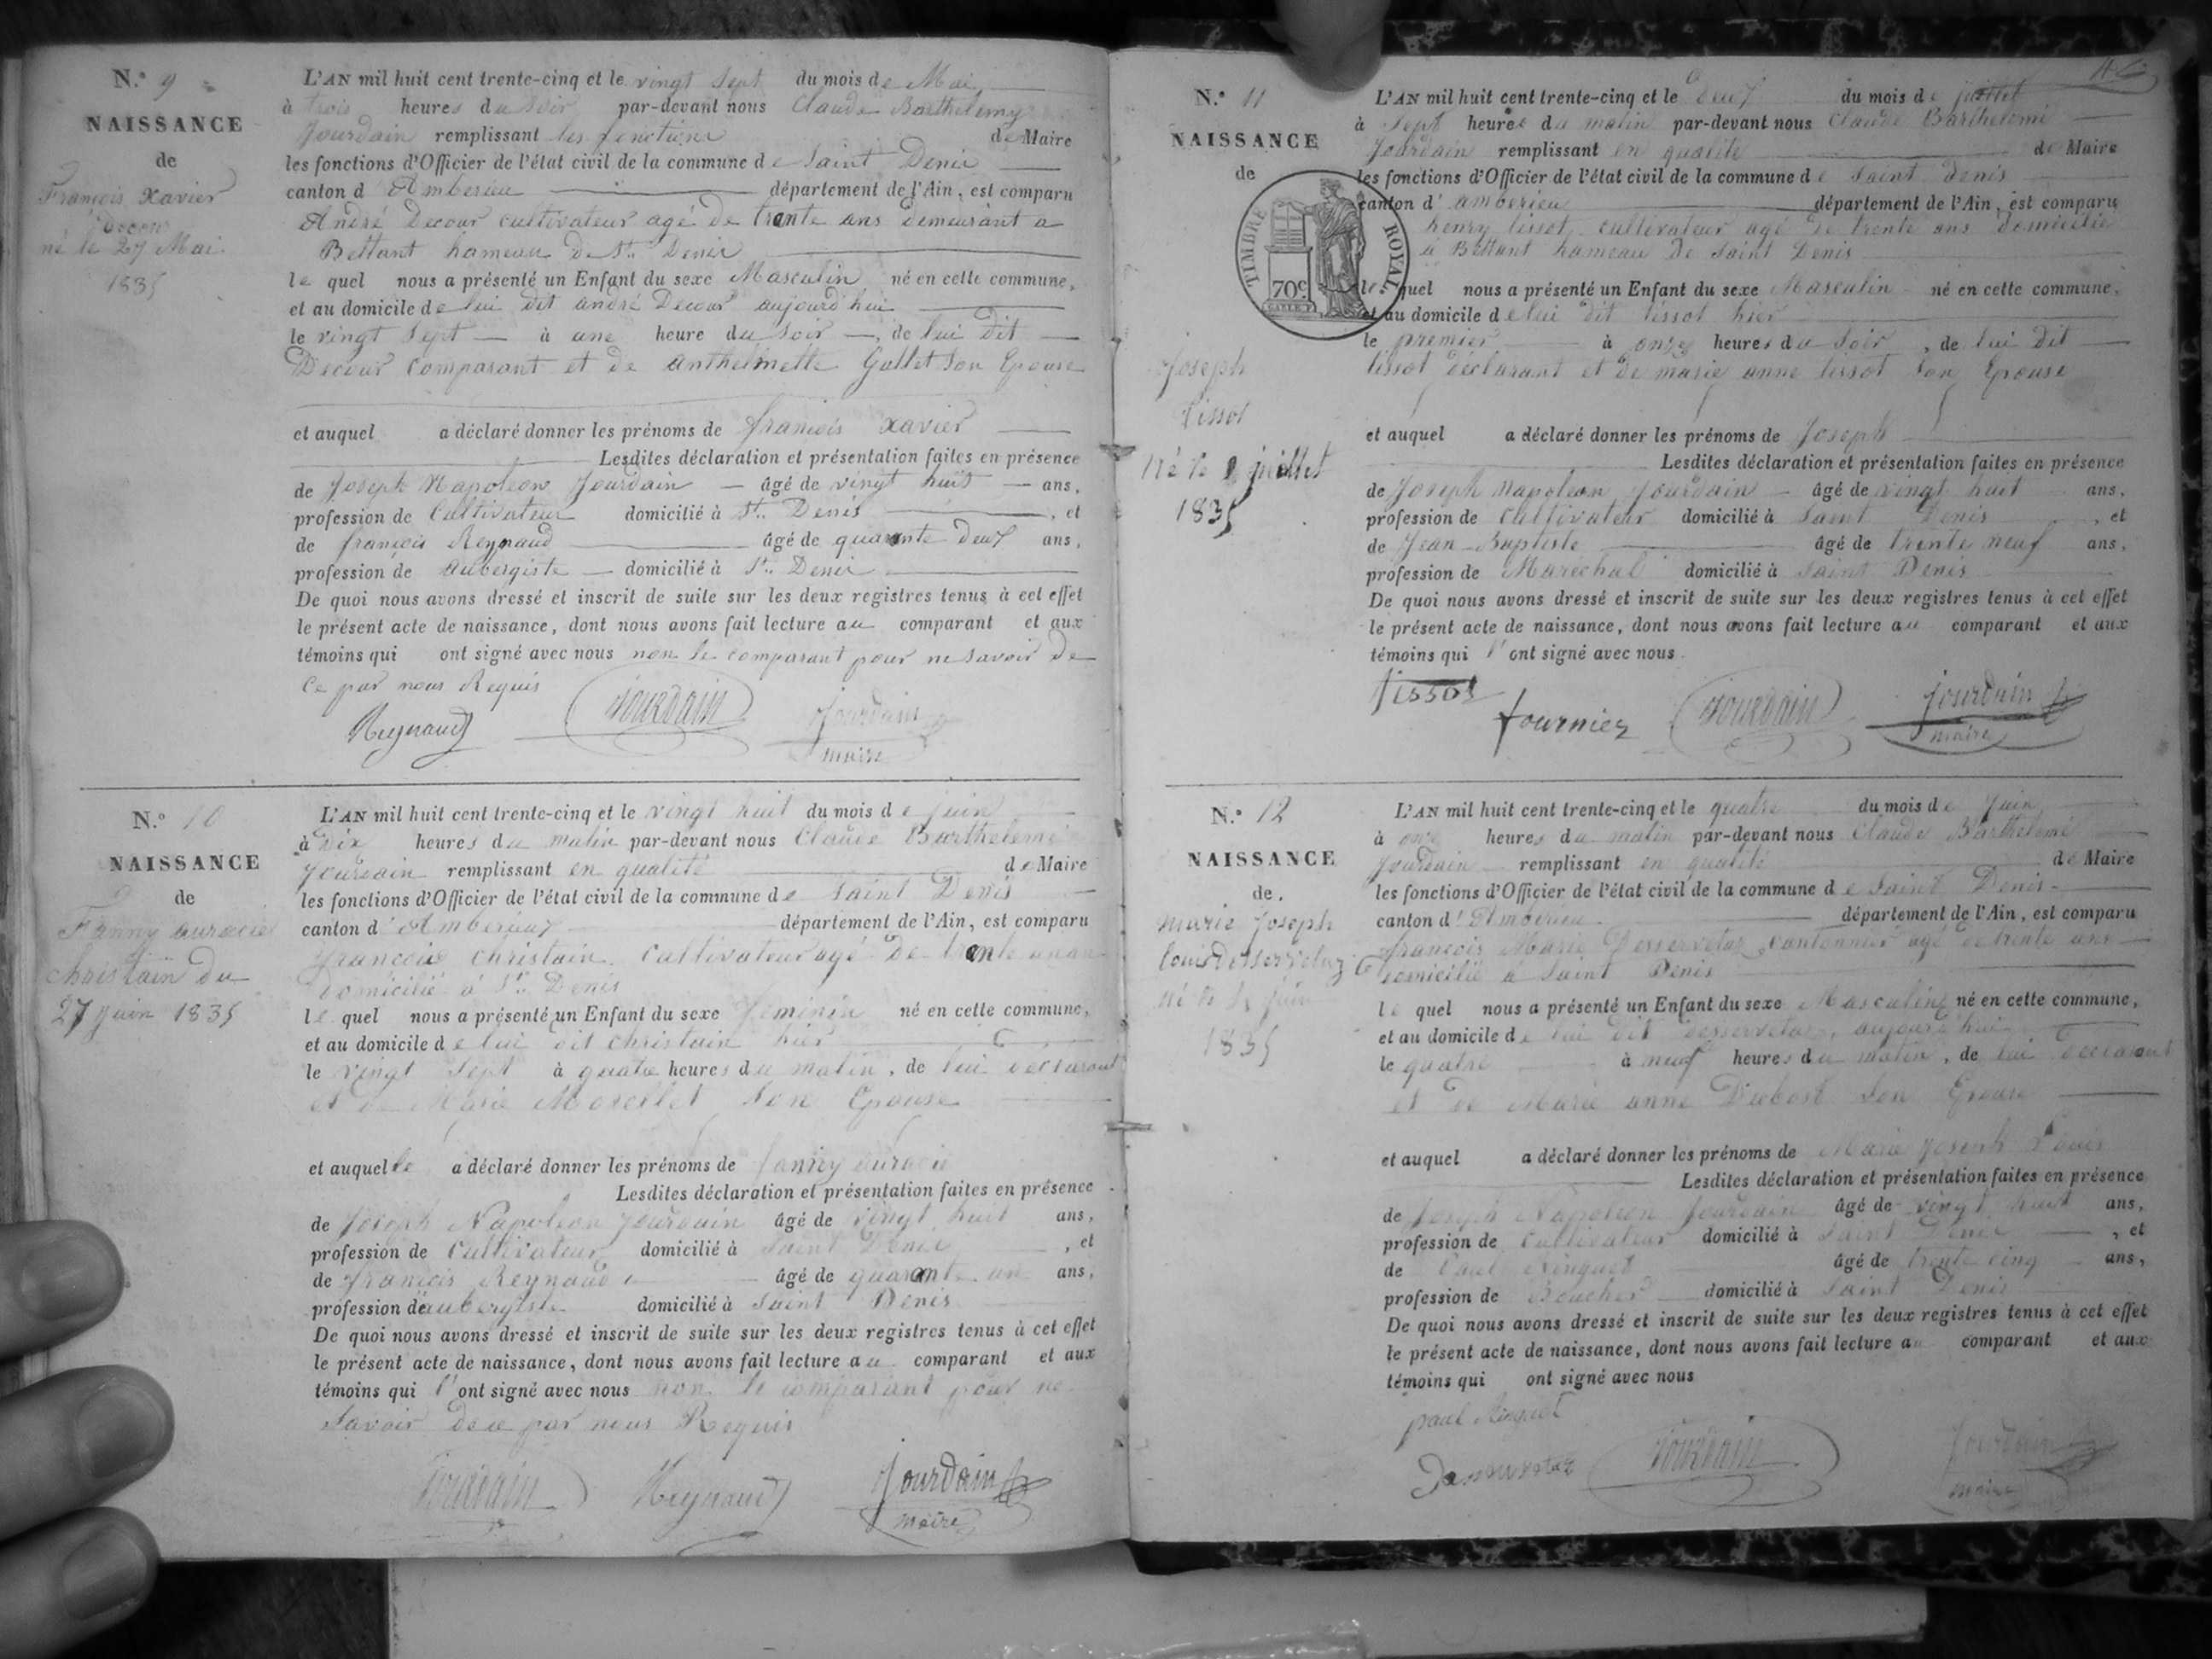 N.º 9
NAISSANCE
de
François Xavier
Decour
né le 27 Mai
1835
L'AN mil huit cent trente-cinq et le vingt sept du mois de Mai
à trois heures du soir par-devant nous Claude Barthelemy
Jourdain remplissant les fonctions de Maire
les fonctions d'Officier de l'état civil de la commune de Saint Denis
canton d'Amberieu département de l'Ain, est comparu
André Decour cultivateur agé de trente ans demeurant a
Bettant hameau de St. Denis
le quel nous a présenté un Enfant du sexe Masculin né en cette commune,
et au domicile de lui dit andré Decour aujourd'hui
le vingt sept à une heure du soir, de lui dit
Decour comparant et de anthelmette Gollet son Epouse
et auquel a déclaré donner les prénoms de françois Xavier
Lesdites déclaration et présentation faites en présence
de Joseph Napoléon Jourdain âgé de vingt huit ans,
profession de Cultivateur domicilié à St. Denis, et
de françois Reynaud âgé de quarante deux ans,
profession de aubergiste domicilié à St. Denis
De quoi nous avons dressé et inscrit de suite sur les deux registres tenus à cet effet
le présent acte de naissance, dont nous avons fait lecture au comparant et aux
témoins qui ont signé avec nous non le comparant pour ne savoir de
ce par nous Requis
Reynaud Jourdain Jourdain
maire
N.º 10
NAISSANCE
de
Fanny
christain du
27 juin 1835
L'AN mil huit cent trente-cinq et le vingt huit du mois de juin
à Dix heures du matin par-devant nous Claude Barthelemi
Jourdain remplissant en qualité de Maire
les fonctions d'Officier de l'état civil de la commune de Saint Denis
canton d'Amberieux département de l'Ain, est comparu
françois christain cultivateur agé de trente
domicilié à St. Denis
le quel nous a présenté un Enfant du sexe feminin né en cette commune,
et au domicile de lui dit christain hier
le vingt sept à quatre heures du matin, de lui declarant
et de Marie Morellet son Epouse
et auquel le a déclaré donner les prénoms de fanny
Lesdites déclaration et présentation faites en présence
de Joseph Napoléon Jourdain âgé de vingt huit ans,
profession de Cultivateur domicilié à Saint Denis, et
de françois Reynaud âgé de quarante un ans,
profession de aubergiste domicilié à Saint Denis
De quoi nous avons dressé et inscrit de suite sur les deux registres tenus à cet effet
le présent acte de naissance, dont nous avons fait lecture au comparant et aux
témoins qui l'ont signé avec nous non le comparant pour ne
savoir de ce par nous Requis
Jourdain Reynaud Jourdain
maire
N.º 11
NAISSANCE
de
TIMBRE ROYAL
70 c
Joseph
tissot
né le juillet
1835
L'AN mil huit cent trente-cinq et le deux du mois de juillet
à sept heures du matin par-devant nous Claude Barthelemi
Jourdain remplissant en qualité de Maire
les fonctions d'Officier de l'état civil de la commune de Saint Denis
canton d'amberieu département de l'Ain, est comparu
henry tissot cultivateur agé de trente ans domicilié
à Bettant hameau de Saint Denis
le quel nous a présenté un Enfant du sexe Masculin né en cette commune,
et au domicile de lui dit tissot hier
le premier à onze heures du soir, de lui dit
tissot déclarant et de marie anne tissot son Epouse
et auquel a déclaré donner les prénoms de Joseph
Lesdites déclaration et présentation faites en présence
de Joseph Napoleon Jourdain âgé de vingt huit ans,
profession de Cultivateur domicilié à Saint Denis, et
de Jean-Baptiste âgé de trente neuf ans,
profession de Marechal domicilié à Saint Denis
De quoi nous avons dressé et inscrit de suite sur les deux registres tenus à cet effet
le présent acte de naissance, dont nous avons fait lecture au comparant et aux
témoins qui l'ont signé avec nous
tissot
fournier Jourdain Jourdain
maire
N.º 12
NAISSANCE
de.
marie Joseph
louis
né le juin
1835
L'AN mil huit cent trente-cinq et le quatre du mois de Juin
à onze heures du matin par-devant nous Claude Barthelemi
Jourdain remplissant en qualité de Maire
les fonctions d'Officier de l'état civil de la commune de Saint Denis
canton d'Amberieu département de l'Ain, est comparu
françois Marie Desservetaz cantonnier agé de trente ans
domicilié a Saint Denis
le quel nous a présenté un Enfant du sexe Masculin né en cette commune,
et au domicile de lui dit desservetaz, aujourd'hui
le quatre à neuf heures du matin, de lui declarant
et de Marie anne Dubost son Epouse
et auquel a déclaré donner les prénoms de Marie Joseph Louis
Lesdites déclaration et présentation faites en présence
de Joseph Napoléon Jourdain âgé de vingt huit ans,
profession de Cultivateur domicilié à Saint Denis, et
de Paul âgé de trente cinq ans,
profession de Boucher domicilié à Saint Denis
De quoi nous avons dressé et inscrit de suite sur les deux registres tenus à cet effet
le présent acte de naissance, dont nous avons fait lecture au comparant et aux
témoins qui ont signé avec nous
paul
Jourdain Jourdain
maire